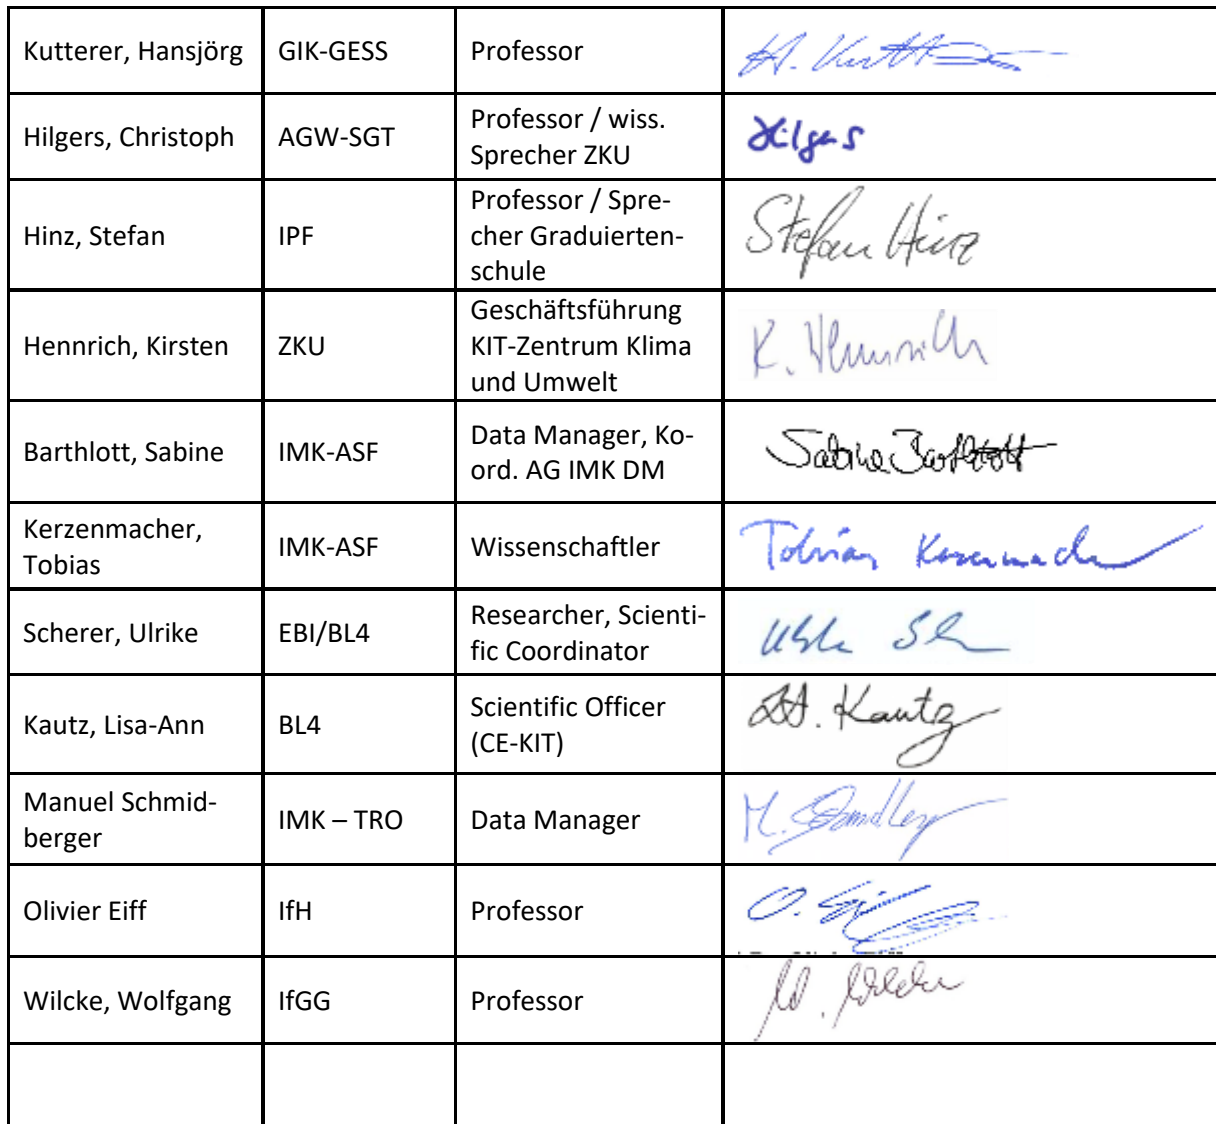 Kutterer, Hansjörg GIK-GESS Professor H. Kutt
Hilgers, Christoph AGW-SGT Professor / wiss.
Sprecher ZKU
Hilgers
Hinz, Stefan IPF Professor / Spre-
cher Graduierten-
schule
Stefan Hinz
Hennrich, Kirsten ZKU Geschäftsführung
KIT-Zentrum Klima
und Umwelt
K. Hennrich
Barthlott, Sabine IMK-ASF Data Manager, Ko-
ord. AG IMK DM
Sabine Barthlott
Kerzenmacher,
Tobias
IMK-ASF Wissenschaftler Tobias Kerzenmacher
Scherer, Ulrike EBI/BL4 Researcher, Scienti-
fic Coordinator
Kautz, Lisa-Ann BL4 Scientific Officer
(CE-KIT)
Kautz
Manuel Schmid-
berger
IMK – TRO Data Manager M.
Olivier Eiff IfH Professor O.
Wilcke, Wolfgang IfGG Professor W. Wilcke